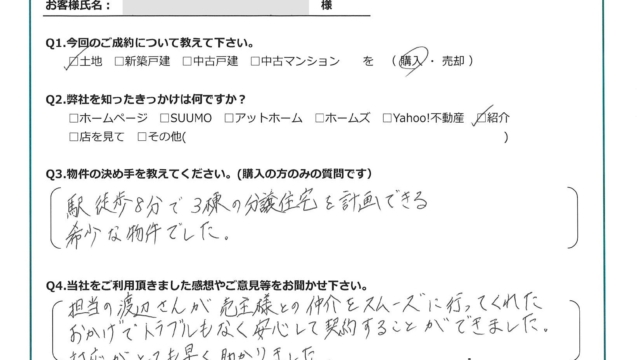 お客様氏名： 様
Q1.今回のご成約について教えて下さい。
□土地 □新築戸建 □中古戸建 □中古マンション を （ 購入 ・ 売却 ）
Q2.弊社を知ったきっかけは何ですか？
□ホームページ □SUUMO □アットホーム □ホームズ □Yahoo!不動産 □紹介
□店を見て □その他( )
Q3.物件の決め手を教えてください。(購入の方のみの質問です）
駅徒歩8分で3棟の分譲住宅を計画できる
希少な物件でした。
Q4.当社をご利用頂きました感想やご意見等をお聞かせ下さい。
担当の渡辺さんが売主様との仲介をスムーズに行ってくれた
おかげでトラブルもなく安心して契約することができました。
対応がとても早く助かりました。